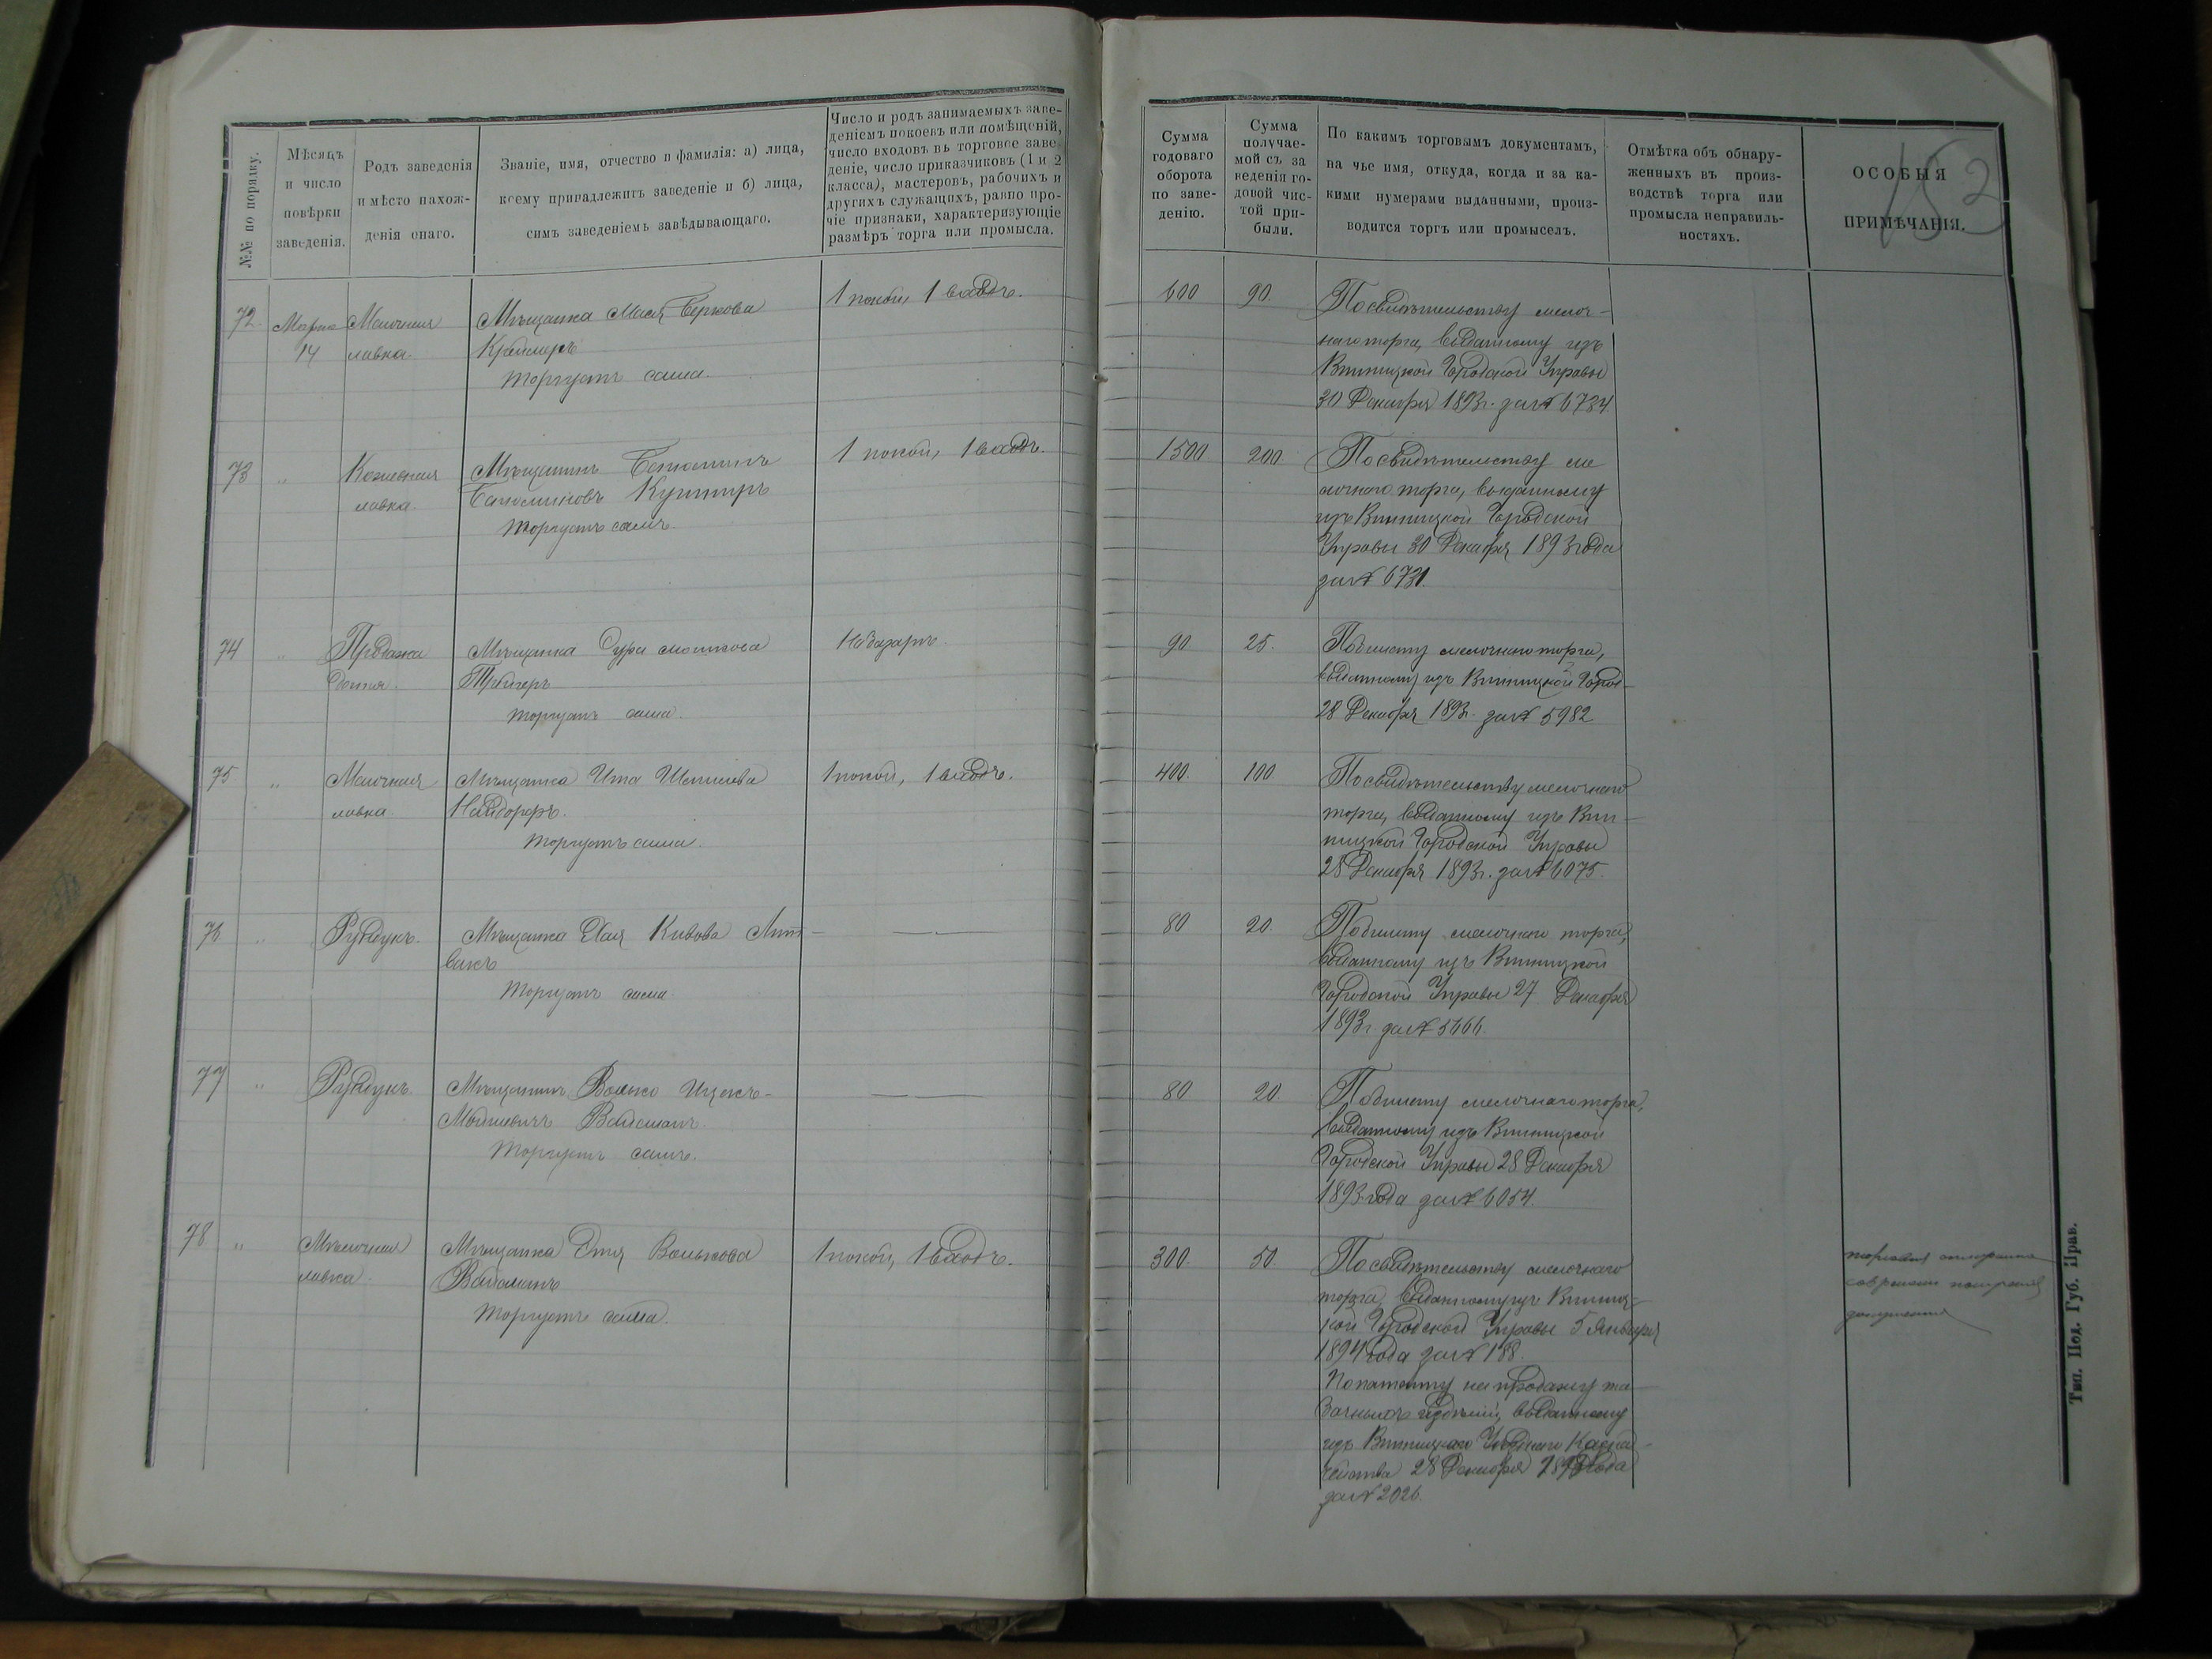 №№ по порядку.
Мѣсяцъ
и число
повѣрки
заведенія.
Родъ заведенія
и мѣсто нахож-
денія онаго.
Званіе, имя, отчество и фамилія: а) лица,
коему принадлежитъ заведеніе и б) лица,
симъ заведеніемъ завѣдывающаго.
Число и родъ занимаемыхъ заве-
деніемъ покоевъ или помѣщеній,
число входовъ въ торговое заве-
деніе, число приказчиковъ (1 и 2
класса), мастеровъ, рабочихъ и
другихъ служащихъ, равно про-
чіе признаки, характеризующіе
размѣръ торга или промысла.
Сумма
годоваго
оборота
по заве-
денію.
Сумма
получае-
мой съ за
веденія го-
довой чис-
той при-
были.
По какимъ торговымъ документамъ,
на чье имя, откуда, когда и за ка-
кими нумерами выданными, произ-
водится торгъ или промыселъ.
Отмѣтка объ обнару-
женныхъ въ произ-
водствѣ торга или
промысла неправиль-
ностяхъ.
ОСОБЫЯ
ПРИМѢЧАНІЯ.
152
72.
Марта
14
Мелочная
лавка.
Мѣщанка Мася Беркова
Крамеръ
торгуетъ сама.
1 покой, 1 входъ.
600
90.
По свидѣтельству мелоч-
наго торга, выданному изъ
Винницкой Городской Управы
30 Декабря 1893 г. за № 6734.
73
"
лавка.
Мѣщанинъ
Кушниръ
торгуетъ самъ.
1 покой, 1 входъ.
1500
200
По свидѣтельству ме
лочнаго торга, выданному
изъ Винницкой Городской
Управы 30 Декабря 1893 года
за № 6731.
74
"
Продажа
Мѣщанка Сура Мошкова
торгуетъ сама.
На базарѣ.
90.
25.
По билету мелочнаго торга,
выданному изъ Винницкой Город-
28 Декабря 1893 г. за № 5982
75
"
Мелочная
лавка.
Мѣщанка Ита
торгуетъ сама.
1 покой, 1 входъ.
400.
100
По свидѣтельству мелочнаго
торга, выданному изъ Вин-
ницкой Городской Управы
28 Декабря 1893 г. за № 6075.
76
"
Рундукъ.
Мѣщанка Хая Кивова Лит-
вакъ
торгуетъ сама.
80
20.
По билету мелочнаго торга,
выданному изъ Винницкой
Городской Управы 27 Декабря
1893 г. за № 5666.
77
"
Рундукъ.
Мѣщанинъ Волько Ицекъ-
Мошковичъ Вайсманъ.
торгуетъ самъ.
80
20.
По билету мелочнаго торга,
выданному изъ Винницкой
Городской Управы 28 Декабря
1893 года за № 6054.
78
"
Мѣлочная
лавка.
Мѣщанка Этя Волькова
торгуетъ сама.
1 покой, 1 входъ.
300.
50.
По свидѣтельству мелочнаго
торга, выданному изъ Винниц-
кой Городской Управы 5 Января
1894 года за № 188.
По патенту на продажу та-
бачныхъ издѣлій, выданному
изъ Винницкаго Уѣзднаго Казна-
чейства 28 Декабря 1893 года
за № 2026.
Тип. Под. Губ. Прав.